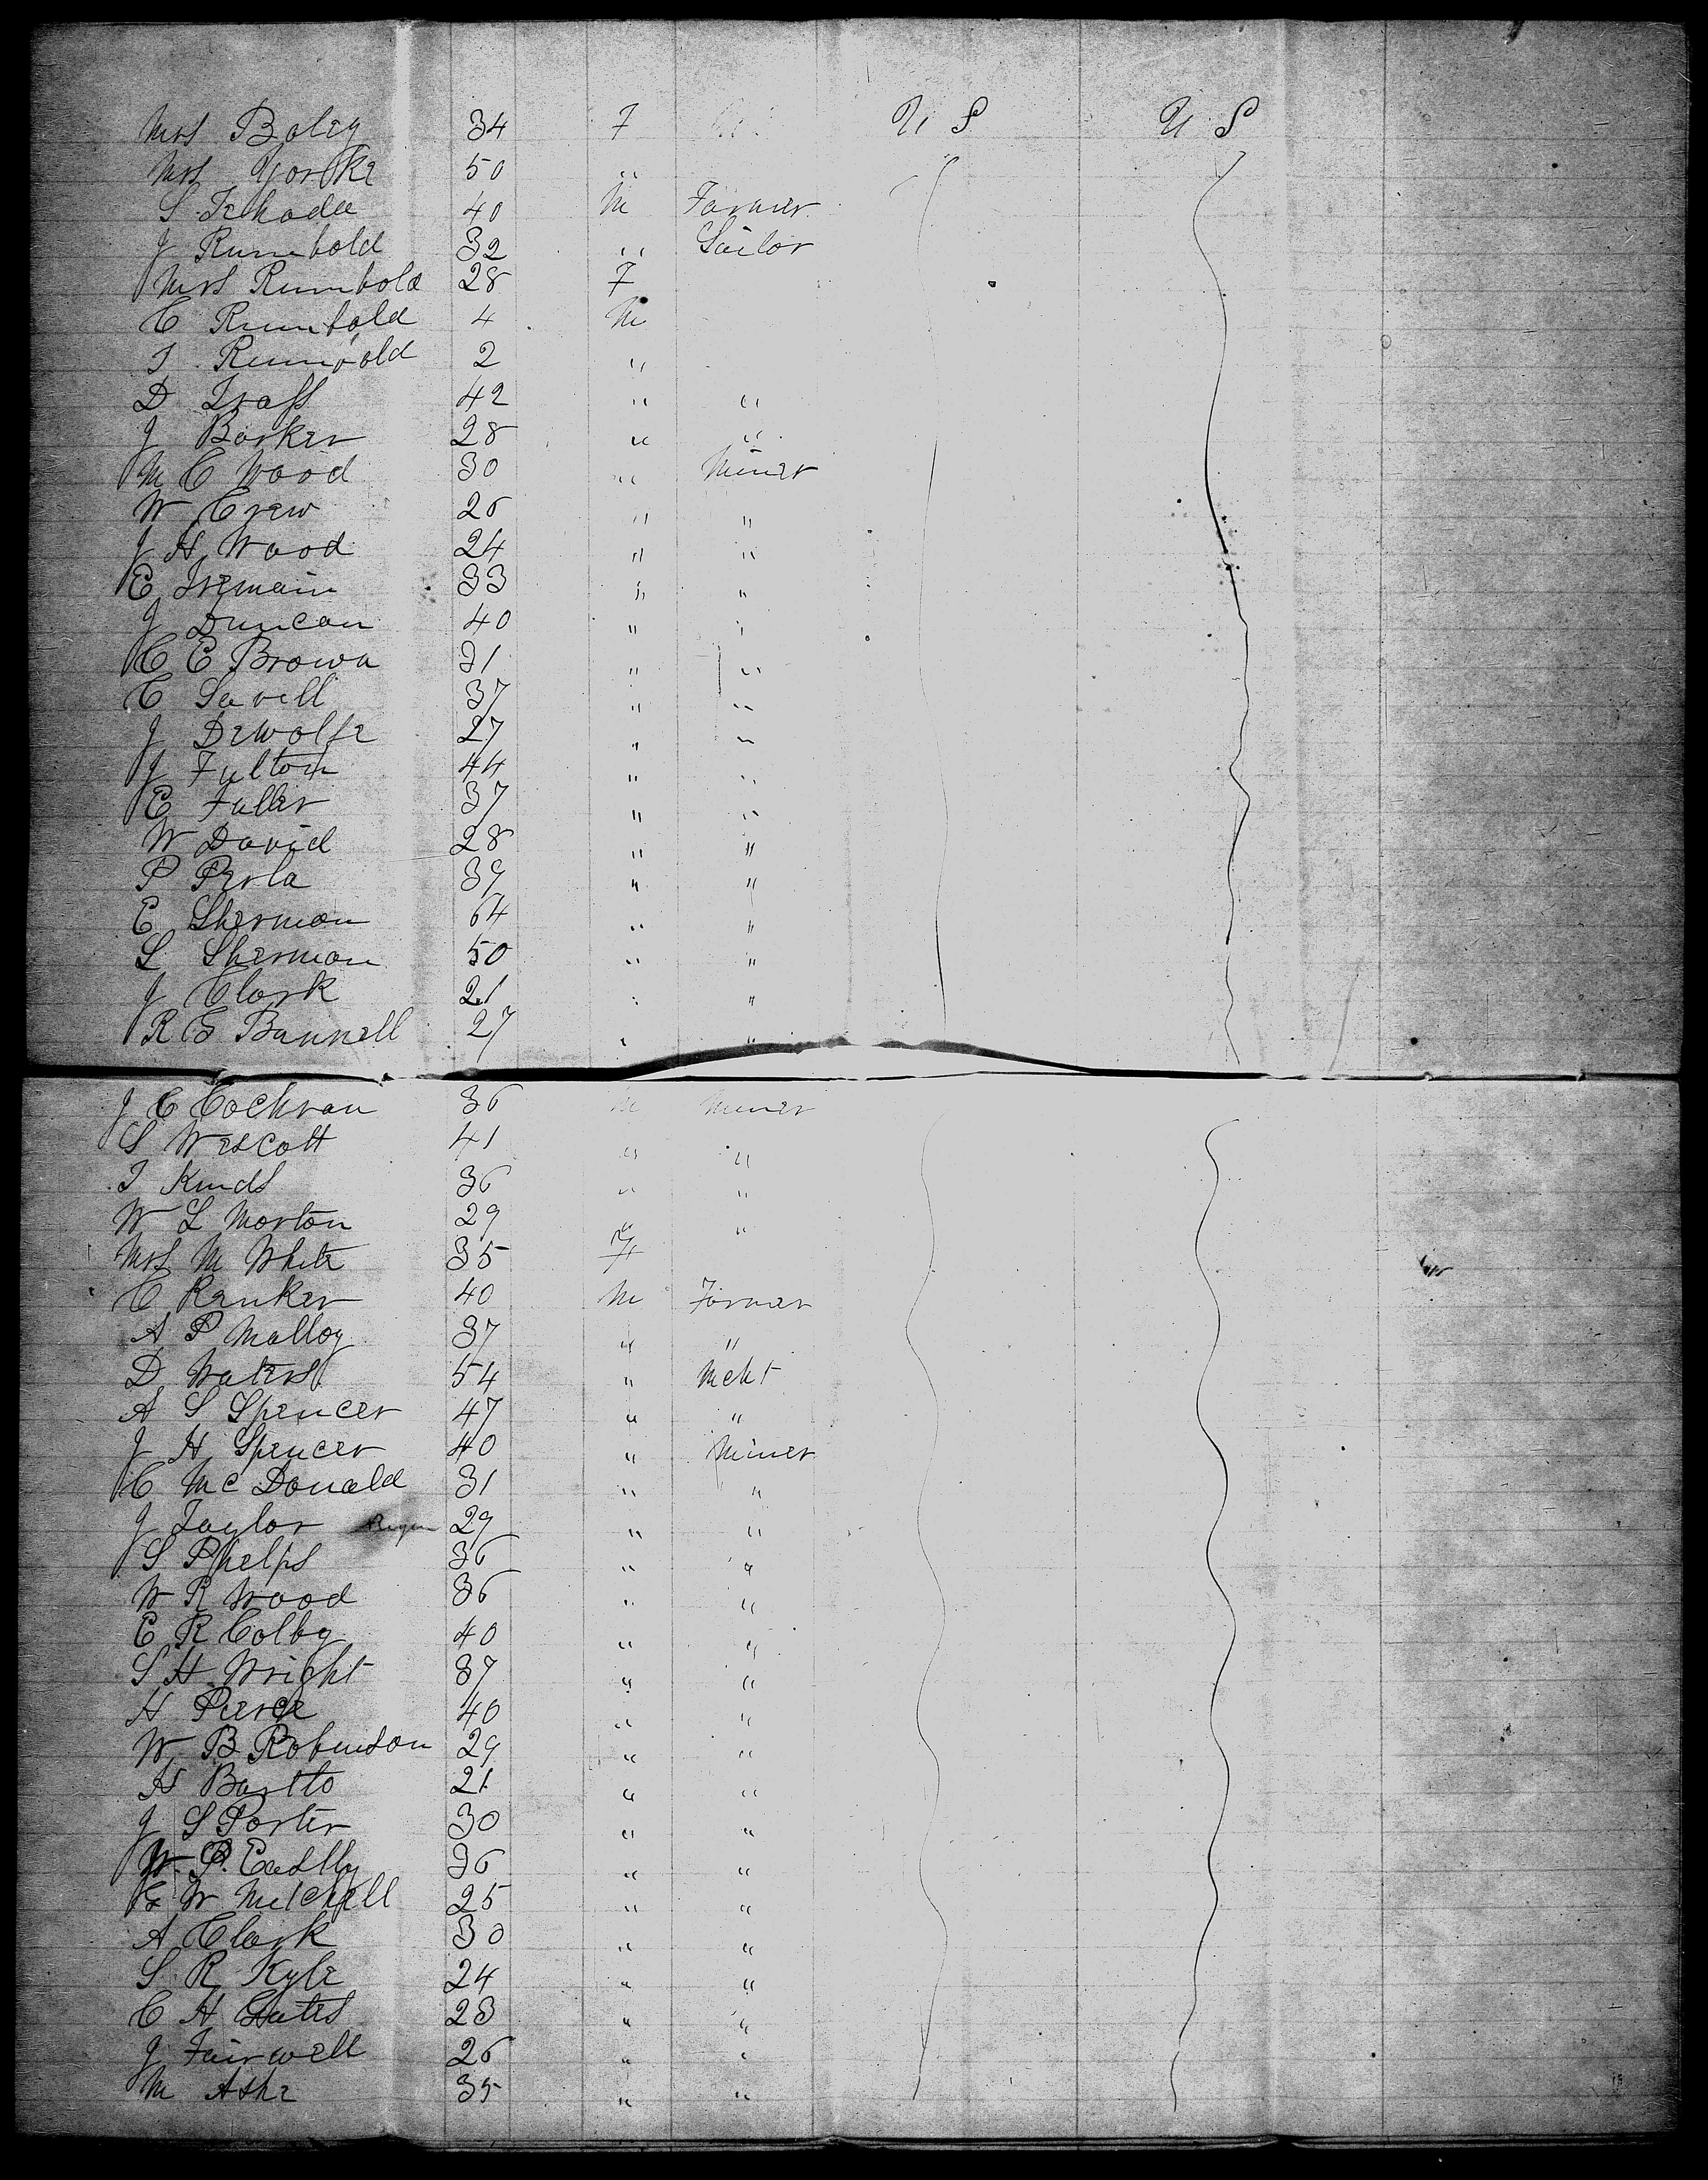 Mrs Boley 34 F U S U S
Mrs Yorke 50 "
S. Tehadee 40 M Farmer
J Rumbold 32 " Sailor
Mrs Rumbold 28 F
C Rumbold 4 M
J. Rumbold 2 "
D Trass 42 " "
J Barker 28 " "
M C Wood 30 " Miner
W Crew 26 " "
J H Wood 24 " "
E Tremain 33 " "
J Duncan 40 " "
C E Brown 31 " "
C Savill 37 " "
J Dewolfe 27 " "
J Fulton 44 " "
E Fuller 37 " "
W David 28 " "
P Perla 39 " "
E Sherman 64 " "
L Sherman 50 " "
J Clark 21 " "
R E Bunnell 27 " "
J C Cochran 36 M Miner
S Wescott 41 " "
J Kinds 36 " "
W L Morton 29 " "
Mrs M White 35 F
C Ranker 40 M Farmer
A P Malloy 37 " "
D Waters 54 " Mcht
A S Spencer 47 " "
J H Spencer 40 " Miner
C McDonald 31 " "
J Taylor 29 " "
S Phelps 36 " "
W R Wood 36 " "
E R Colby 40 " "
S H Wright 37 " "
H Pierce 40 " "
W B Robinson 29 " "
H Bartto 21 " "
J S Porter 30 " "
W. P. Eastly 36 " "
G W Mitchell 25 " "
A Clark 30 " "
S R Kyle 24 " "
C H Gates 23 " "
J Fairwell 26 " "
M Ashe 35 " "